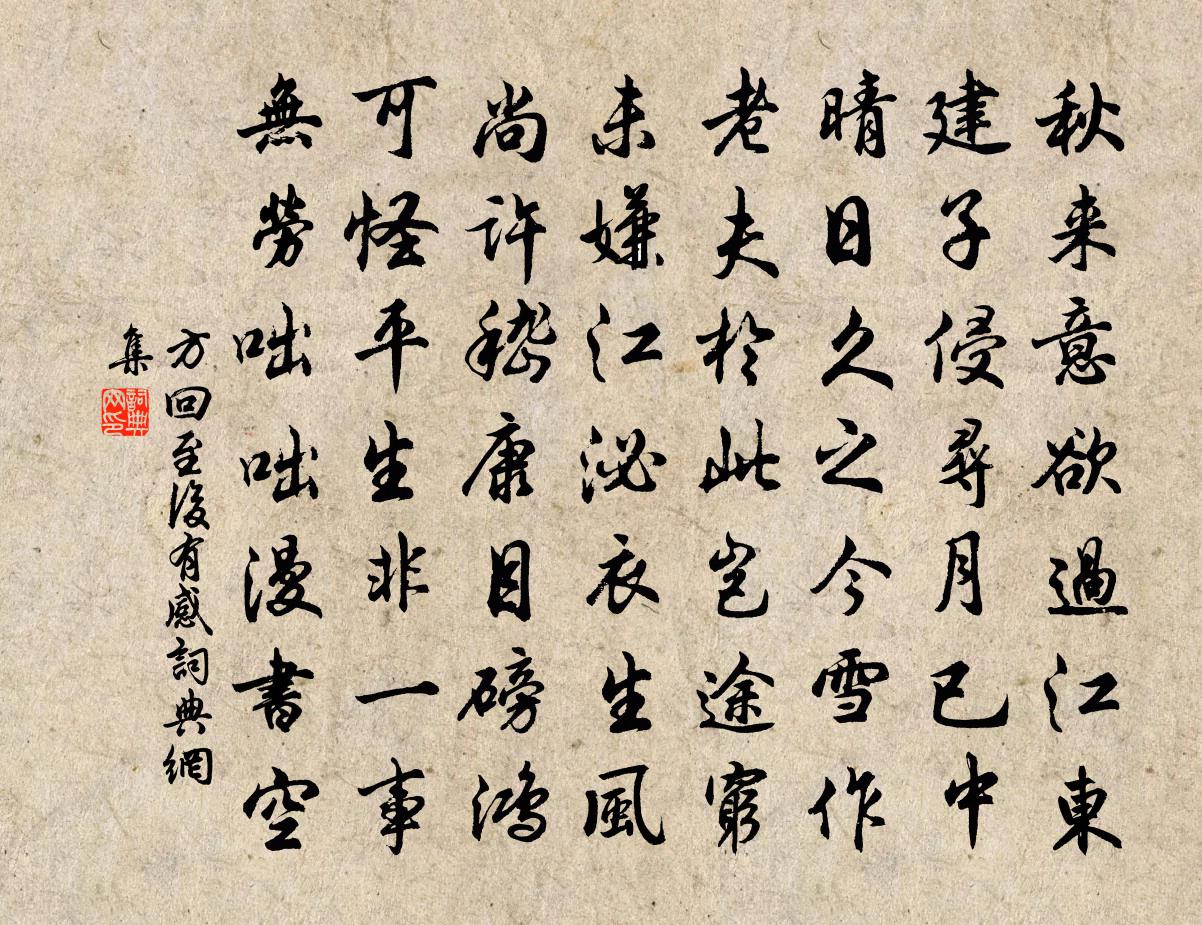 秋来意欲過江東
建子侵尋月已中
晴日久之今雪作
老夫於此豈途窮
未嫌江泌衣生風
尚許嵇康目磅鴻
可怪平生非一事
無勞咄咄漫書空
方回至後有感詞典網
集
詞典網印